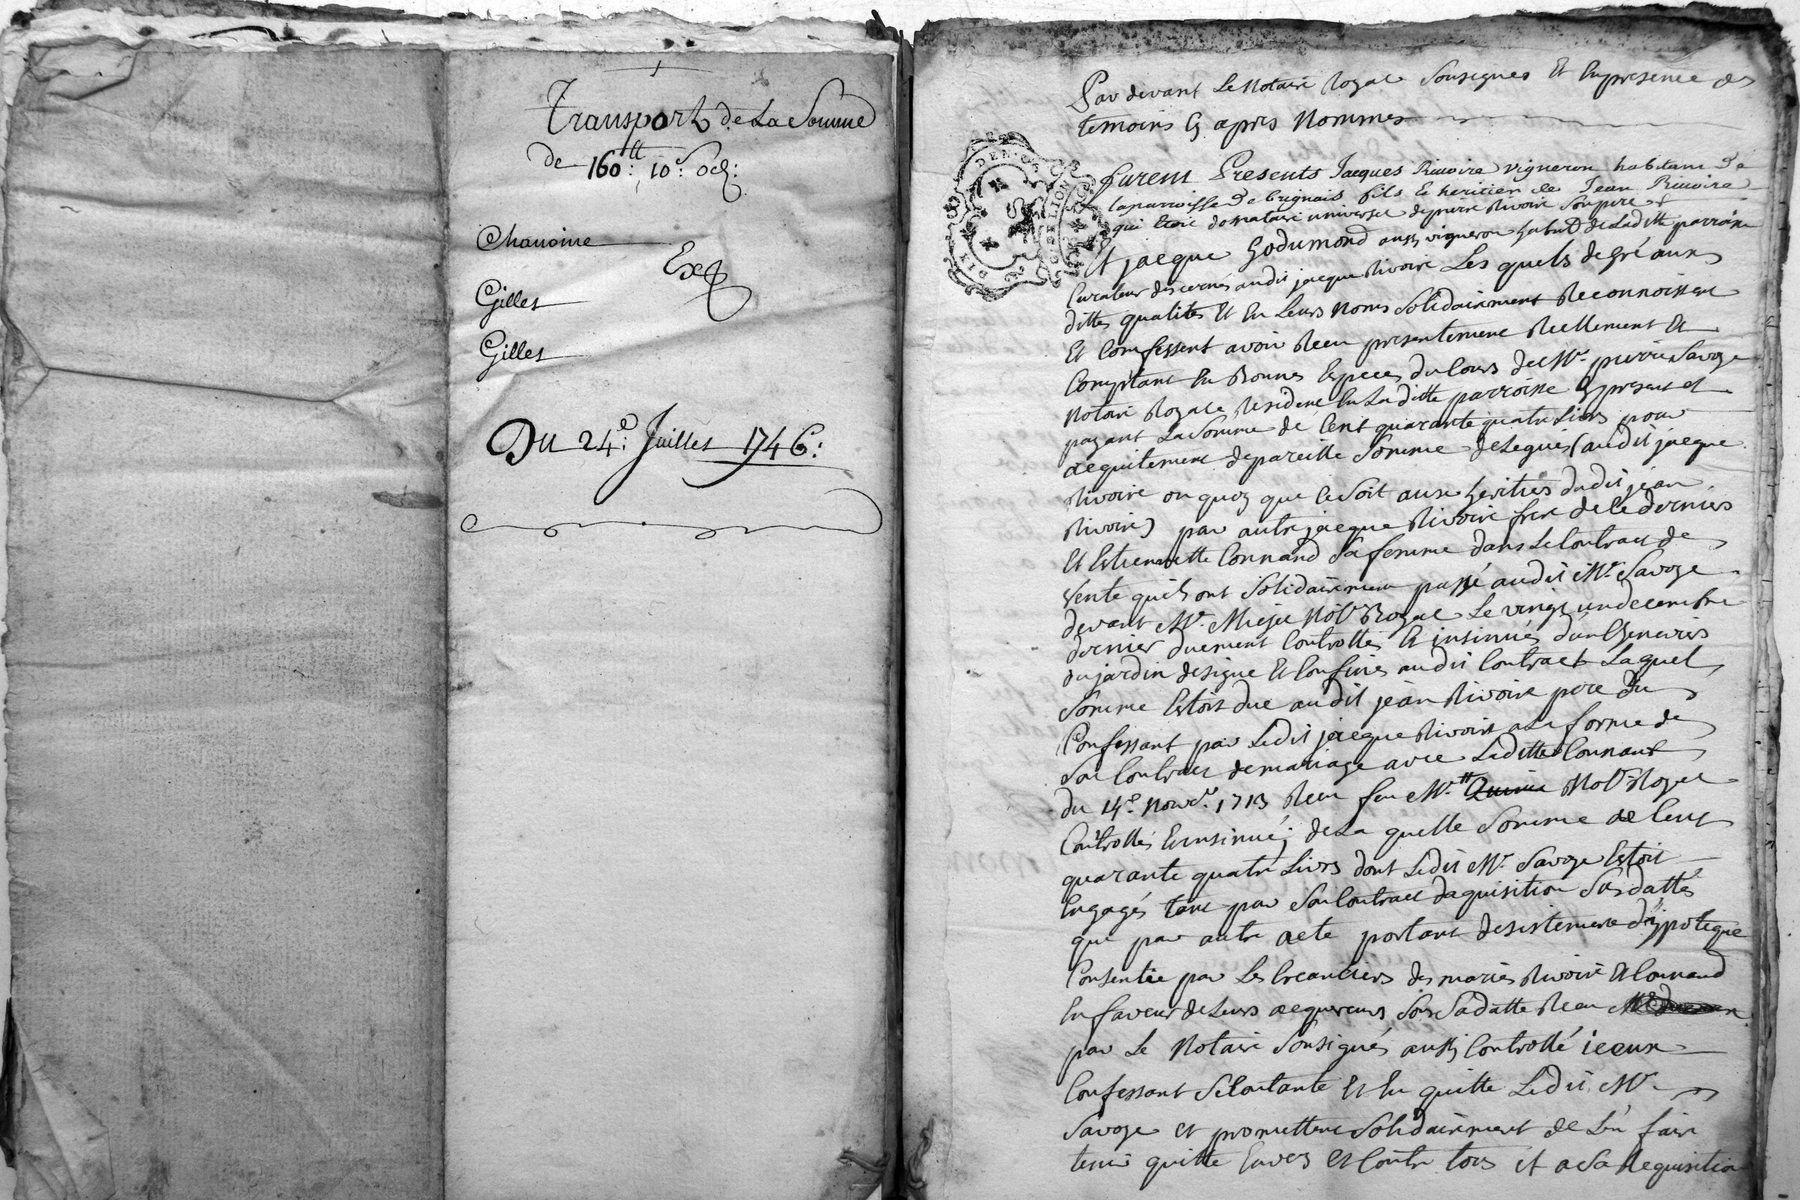 Transport de La Somme
de 160ᵗᵗ: 10ˢ: 
Chanoine
Exp
Gilles
Gilles
Du 24ᵉ: Juillet 1746:
DIX DEN.ᴱˢ
G. DE LION
Par devant Le Notaire Royal Soussignés Et En presence des
temoins Cy apres Nommes
furent Presents Jacques Rivoire vigneron habitant de
la parroisse de brignais fils Et heritier de Jean Rivoire
qui Etoit donnataire universel de pierre Rivoire Son pere &
Et jacque Godumond aussy vigneron habitᵗ de Laditte parroisse
Curateur descernés audit jacque Rivoire Les quels de gré aux
dittes qualités Et En Leurs Noms Solidairement Reconnoissent
Et Confessent avoir Receu presentement Reellement Et
Comptant En Bonnes Especes du Cours de Mʳ. pierre Savoye
Notaire Royal Resident En La ditte parroisse Cy present et
payant La Somme de Cent quarante quatre Livres pour
acquitement de pareille Somme deleguée (audit jacque
Rivoire ou quoy que Ce Soit aux heritiers dudit jean
Rivoire) par autre jacque Rivoire frere de Ce derniers
Et Estiennette Connand Sa femme dans Le Contract de
Vente quils ont Solidairement passé audit Mʳ. Savoye
devant Mʳ. Notʳᵉ Royal Le vingt un decembre
dernier duement Controllés Et insinués d'un
du jardin designé Et Confinés audit Contract Laquelle
Somme Estoit due audit jean Rivoire pere du
Confessant par Ledit jacque Rivoire a La forme de
Son Contract de mariage avec Laditte Connand
du 14ᵉ. Novᵇʳᵉ. 1713 Receu feu Mʳ. Notʳᵉ Royal
Controllés Et insinué; de La quelle Somme de Cent
quarante quatre Livres dont Ledit Mʳ. Savoye Estoit
Engagés tant par Son Contract daquisition Susdattés
que par autre acte portant desistement d'hypoteque
Consentie par Les Creanciers des mariés Rivoire Et Connand
En faveur de Leurs acquereurs Sous Sa datte Receu
par Le Notaire Soussignés aussy Controllé iceux
Confessant Se Contante Et En quitte Ledit Mʳ.
Savoye et promettent Solidairement de L'en faire
tenir quitte Envers Et Contre tous et a Sa Requisition